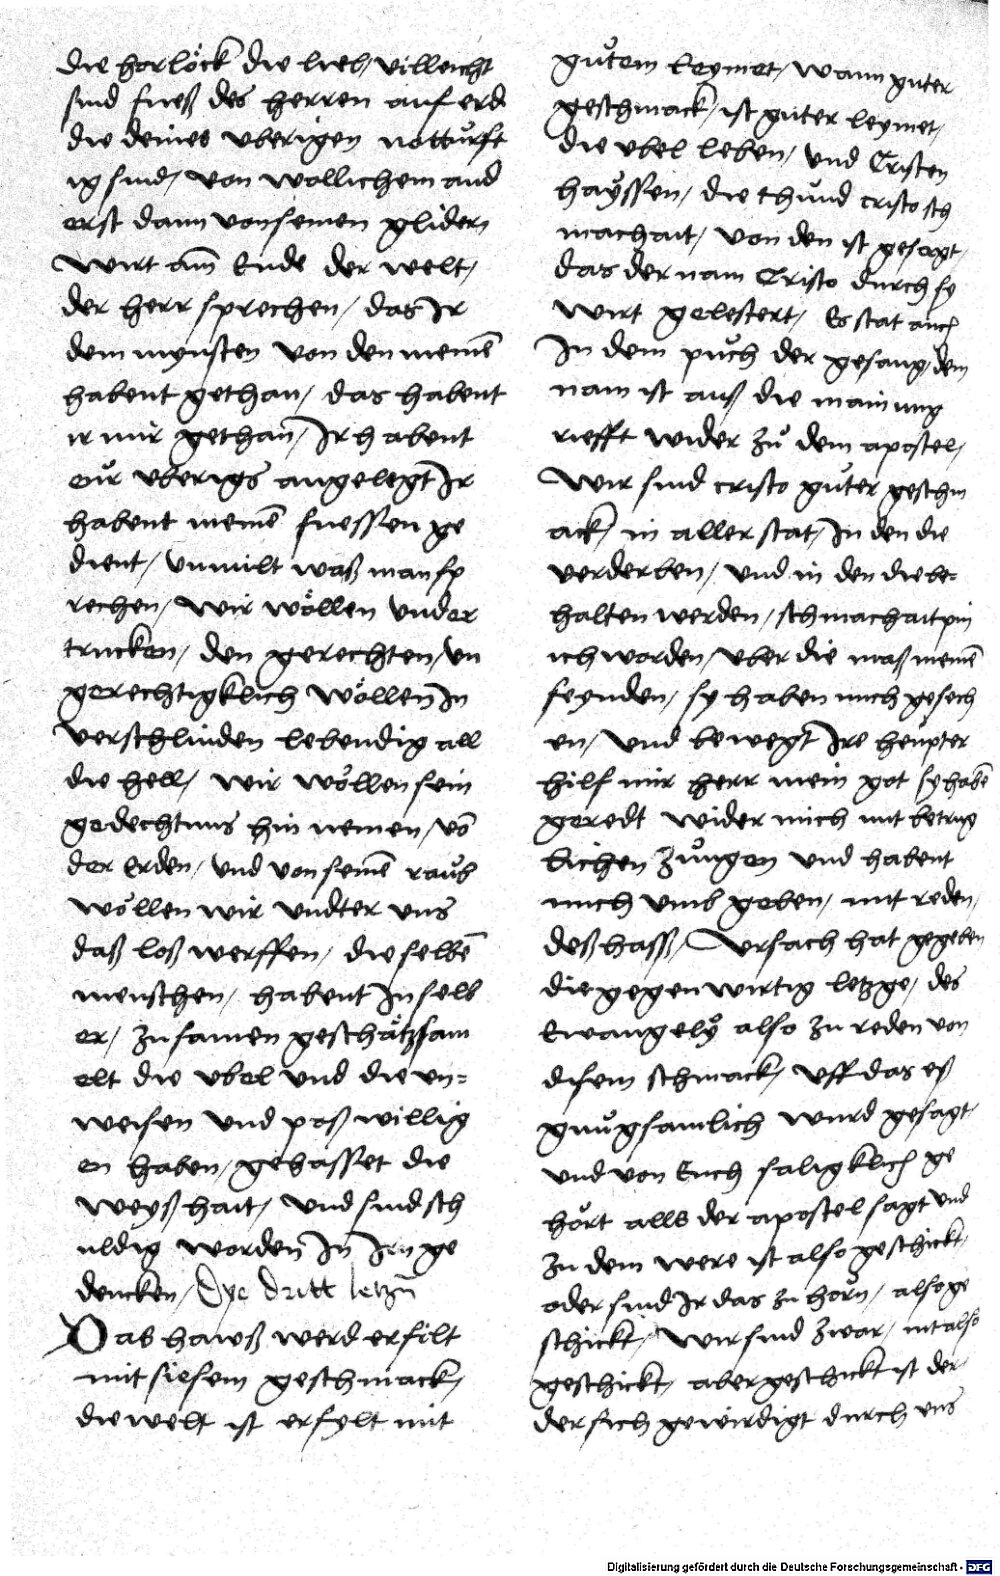 die horlöck die lieb, villeicht
sind fueß des herren auf erd
die deines uberigen notturft
ig sind, von wollichem and
erst dann von seinen glidern
wirt am Ende der welt,
der herr sprechen, das Ir
dem mynsten von den meinē
habent gethan, das habent
ir mir gethan, Ir habent
eur uberigs angelegt Ir
habent meinē fuessen ge
dient, unmilt waß man sp
rechen, wir wöllen under
trucken, den gerechten, un
gerechtigklich wöllen In
verschlinden lebendig all
die hell, wir wöllen sein
gedechtnus hin nemen, vō
der Erden, und von seinē raub
wöllen wir undter uns
daß loß werffen, die selbē
menschen, habent In selb
er, zu samen geschätz sam
elt die ubel und die un=
weisen und poß willig
en haben, gehasset die
weyßhait, und sind sch
uldig worden In Irn ge
dencken, Dye dritt letzñ
Dab hawß werd erfilt
mit siesem geschmack,
die welt ist erfylt mit
gutem leymet, wann guter
geschmack, ist guter leymet,
die ubel leben, und Cristen
hayssen, die thund cristo sch
machait, von den ist gesagt,
das der nam Cristo durch sy
wirt gelestert, Es stat auch
In dem puch der gesang, dem
nam ist auß die mainung
riefft wider zu dem apostel,
Wir sind cristo guter geschm
ack, in aller stat, In den die
verderben, und in den die be=
halten werden, schmachait pin
ich worden, uber die maß meinē
feynden, sy haben mich gesech
en, und bewegt Ire heupter
hilf mir herr mein got sy habē
geredt wider mich mit betrug
lichen zungen und habent
mich umb geben, mit reden,
deß hasß, Ursach hat gegeben
die gegenwirtig letzge, des
Ewangely also zu reden von
disem schmack, uff das eß
gnugsamlich wurd gesagt,
und von Euch saligklich ge
hört alls der apostel sagt und
zu dem were ist also geschickt,
oder sind Ir das zu horn, also ge
schickt, wir sind zwar, nit also
geschickt, aber geschickt ist der
der sich gewirdigt durch uns
Digitalisierung gefördert durch die Deutsche Forschungsgemeinschaft - DFG